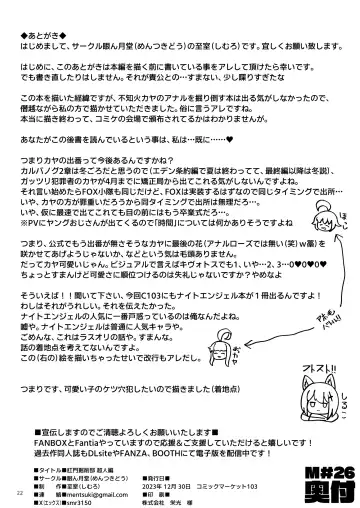 ◆あとがき◆
はじめまして、サークル眼ん月堂（めんつきどう）の至室（しむろ）です。宜しくお願い致します。
はじめに、このあとがきは本編を描く前に書いている事をアレして頂けたら幸いです。
でも書き直したりはしません。それが貴公との…すまない、少し躁りすぎたな
この本を描いた経緯ですが、不知火カヤのアナルを掘り倒す本は出る気がしなかったので、
僭越ながら私の方で描かせていただきました。俗に言うアレですね。
本当に描き終わって、コミケの会場で頒布されてるかはわかりませんが。
あなたがこの後書を読んでいるという事は、私は…既に……♥
つまりカヤの出番って今後あるんですかね？
カルバノグ2章は冬ごろだと思うので（エデン条約編で夏は終わってて、最終編以降は冬説）、
ガッツリ犯罪者のカヤが4月までに矯正局から出てこれる気がしないんですよね。
それ言い始めたらFOX小隊も同じだけど、FOXは実装するはずなので同じタイミングで出所…
いや、カヤの方が罪重いだろうから同タイミングで出所は無理だろ…。
いや、仮に最速で出てこれても目の前にはもう卒業式だろ…。
※PVにヤングおじさんが出てくてるので「時間」については何かありそうですよね
つまり、公式でもう出番が無さそうなカヤに最後の花（アナルローズでは無い（笑）w藁）を
咲かせてあげようじゃないか、などという気は毛頭ありません。
だってカヤ可愛いじゃん。ビジュアルで言えばキヴォトスでも1、いや…2、3…0♥0♥0♥
ちょっとすまんけど可愛さに順位つけるのは失礼じゃないですか？やめなよ
そういえば！！聞いて下さい、今回C103にもナイトエンジェル本が１冊出るんですよ！
私はそれがうれしい。それを伝えたかった。
ナイトエンジェルの人気に一番戸惑っているのは俺なんだよね。
嘘や。ナイトエンジェルは普通に人気キャラや。
ごめんな、これはラスオリの話や。すまんな。
話の着地点を考えてないんですよ。
この（右の）絵を描いちゃったせいで改行もアレだし。
つまりです、可愛い子のケツ穴犯したいので描きました（着地点）
■宣伝しますのでご清聴よろしくお願いいたします■
FANBOXとFantiaやっていますので応援＆ご支援していただけると嬉しいです！
過去作同人誌もDLsiteやFANZA、BOOTHにて電子版を配信中です！
■タイトル■肛門断削部 超人編
■サークル■眼ん月堂（めんつきどう）
■制　作■至室（しむろ）
■連　絡■mentsuki@gmail.com
■X（エックス）■smr3150
■発行日■
2023年12月30日　コミックマーケット103
■印　刷■
株式会社　栄光　様
M♯26
奥付
22